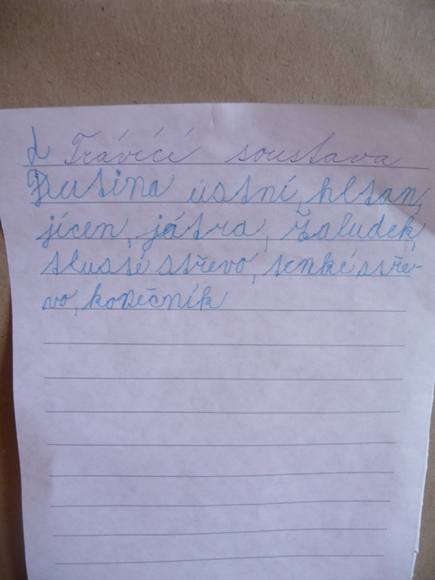 L Trávící soustava
Dutina ústní, hltan,
jícen, játra, Žaludek,
tlusté střevo, tenké stře-
vo, konečník